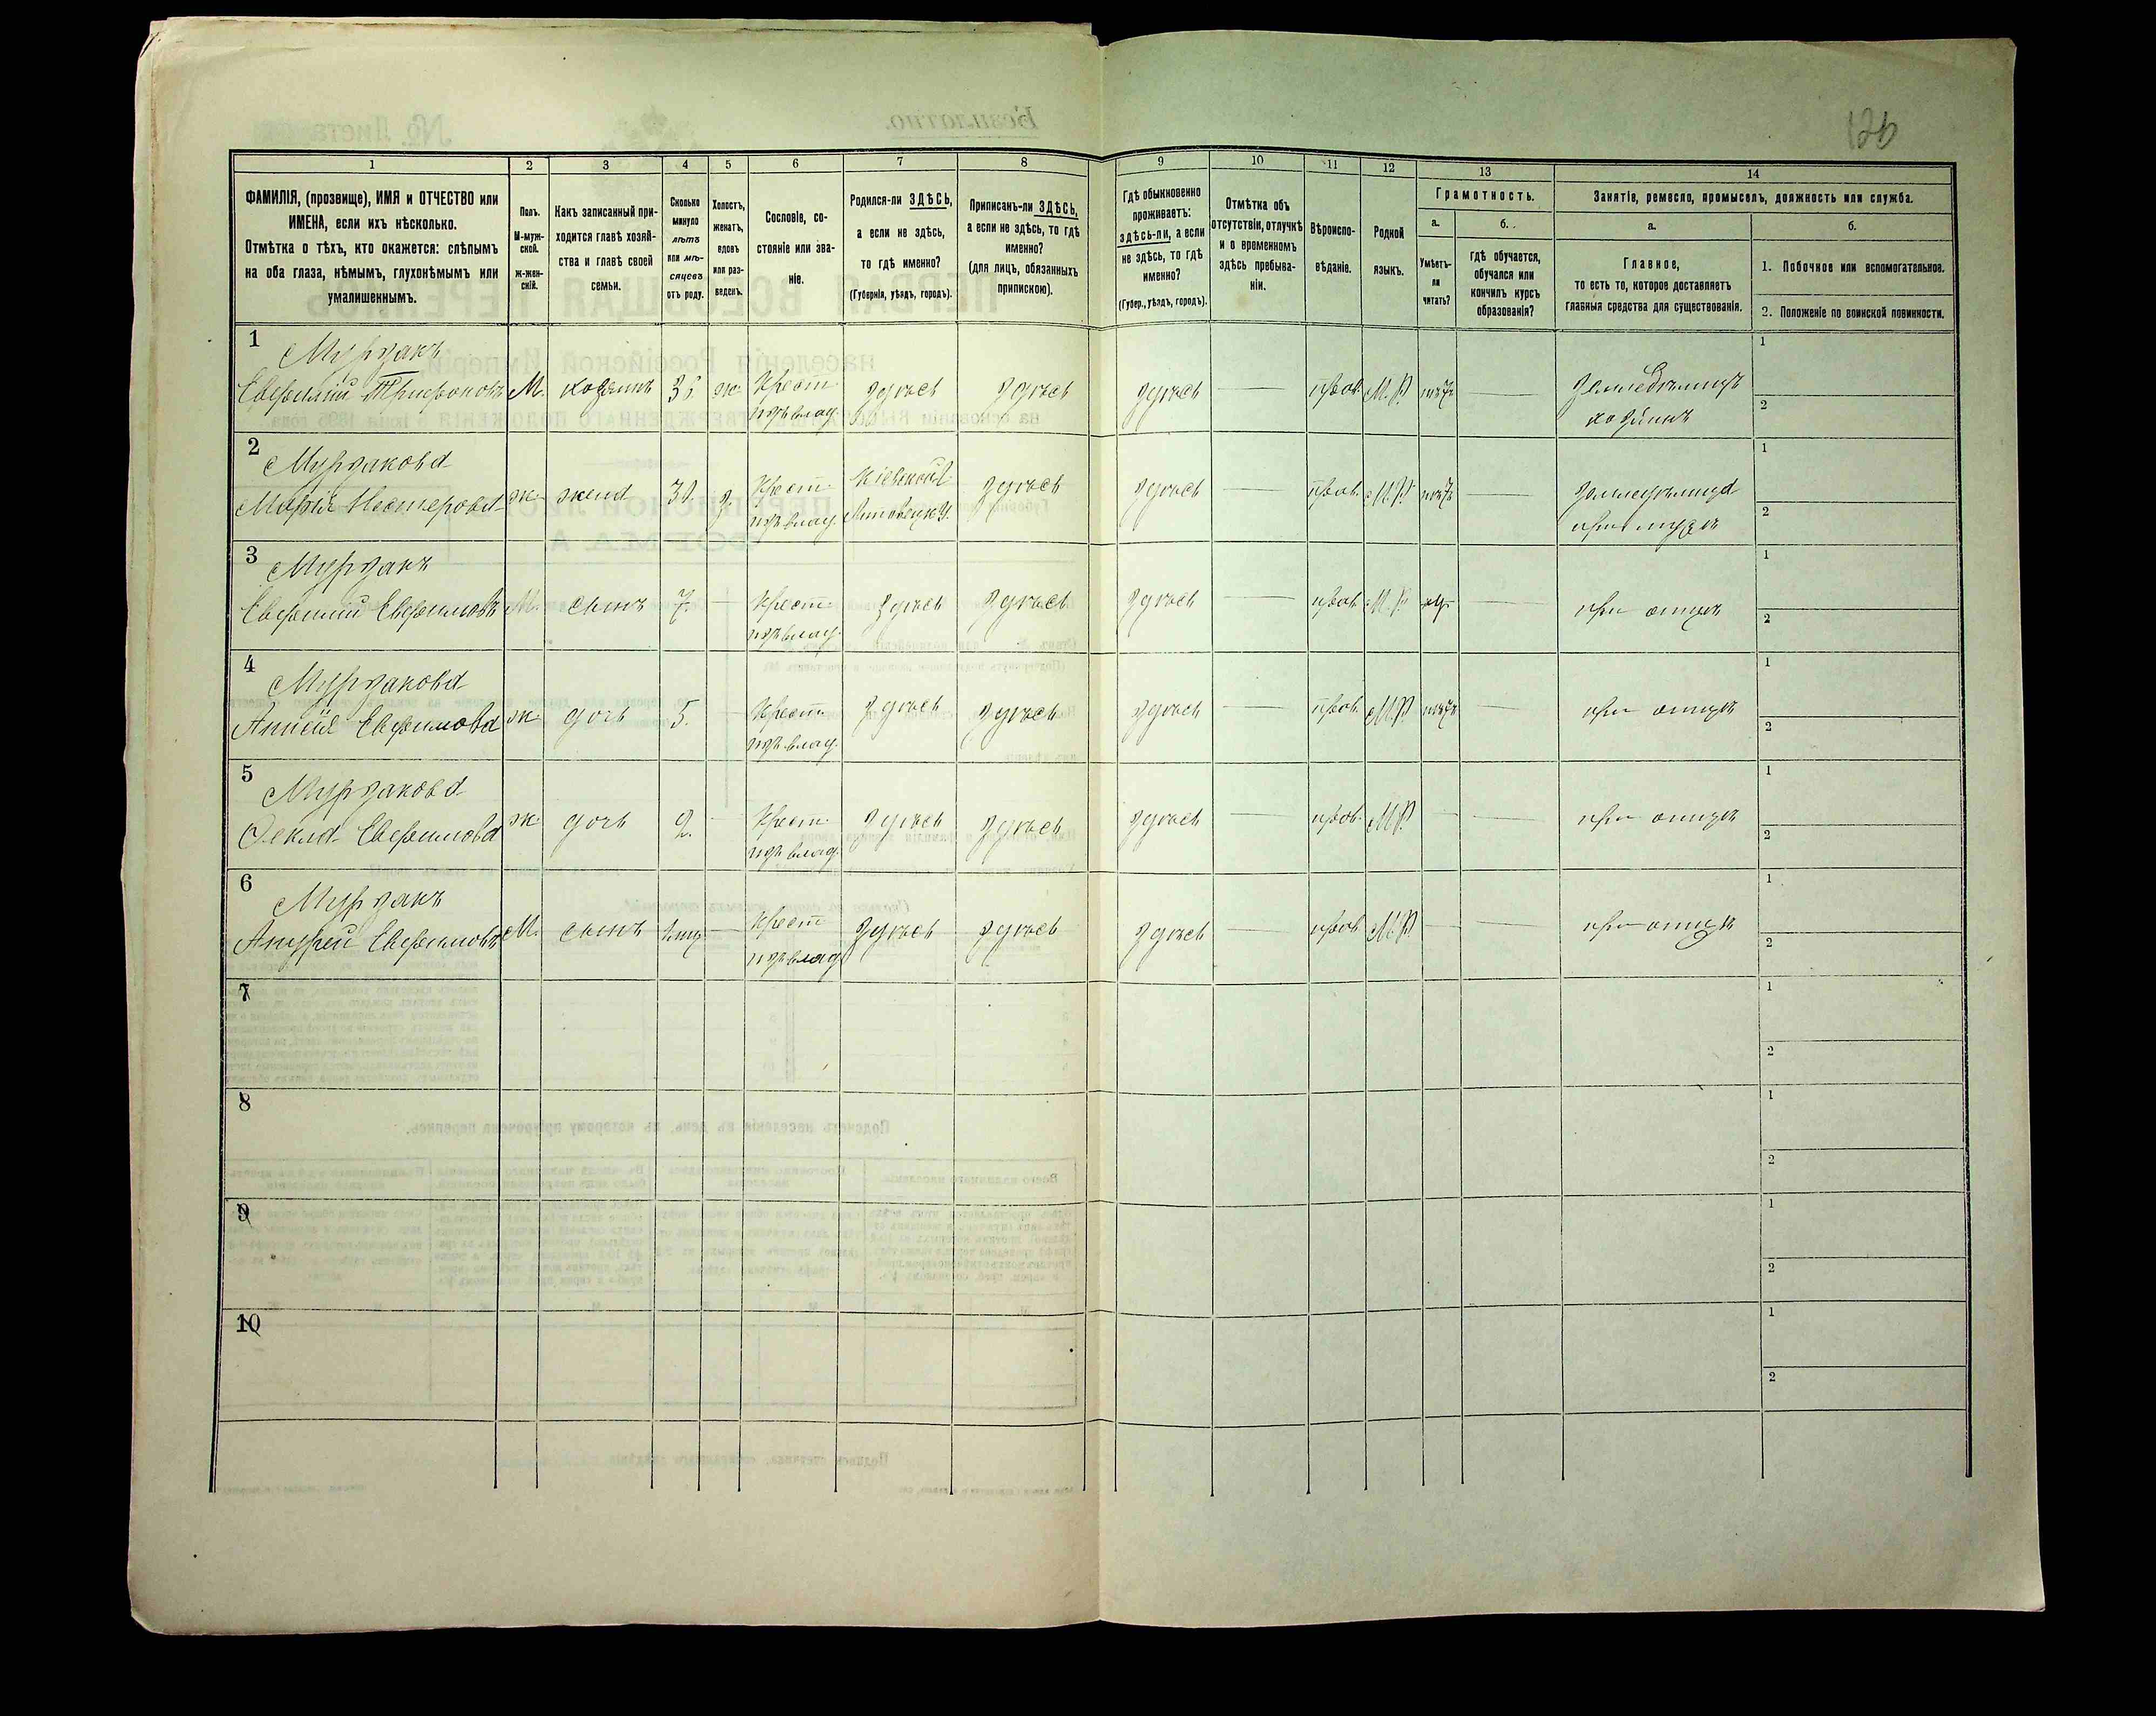 126
1
2
3
4
5
6
7
8
9
10
11
12
13
14
ФАМИЛІЯ, (прозвище), ИМЯ и ОТЧЕСТВО или
ИМЕНА, если ихъ нѣсколько.
Отмѣтка о тѣхъ, кто окажется: слѣпымъ
на оба глаза, нѣмымъ, глухонѣмымъ или
умалишеннымъ.
Полъ.
М-муж-
ской.
ж-жен-
скій.
Какъ записанный при-
ходится главѣ хозяй-
ства и главѣ своей
семьи.
Сколько
минуло
лѣтъ
или мѣ-
сяцевъ
отъ роду.
Холостъ,
женатъ,
вдовъ
или раз-
веденъ.
Сословіе, со-
стояніе или зва-
ніе.
Родился-ли ЗДѢСЬ,
а если не здѣсь,
то гдѣ именно?
(Губернія, уѣздъ, городъ).
Приписанъ-ли ЗДѢСЬ,
а если не здѣсь, то гдѣ
именно?
(для лицъ, обязанныхъ
припискою).
Гдѣ обыкновенно
проживаетъ:
здѣсь-ли, а если
не здѣсь, то гдѣ
именно?
(Губер., уѣздъ, городъ).
Отмѣтка объ
отсутствіи, отлучкѣ
и о временномъ
здѣсь пребыва-
ніи.
Вѣроиспо-
вѣданіе.
Родной
языкъ.
Грамотность.
а.
б.
Умѣетъ-
ли
читать?
гдѣ обучается,
обучался или
кончилъ курсъ
образованія?
Занятіе, ремесло, промыселъ, должность или служба.
а.
б.
Главное,
то есть то, которое доставляетъ
главныя средства для существованія.
1. Побочное или вспомогательное.
2. Положеніе по воинской повинности.
1
Мурзакъ
Евфимій Трифоновъ М. хозяинъ ж. Крест. здѣсь здѣсь здѣсь — прав. М.Р. — Земледѣлецъ
изъ влад. хозяинъ
1
2
2
Мурзакова Кіевской
Марія Нестерова ж. жена з. Крест. здѣсь здѣсь — прав. М.Р. —
изъ влад. при мужѣ
1
2
3
Мурзакъ
Евфимій Евфимовъ М. сынъ 7. — Крест. здѣсь здѣсь здѣсь — прав. М.Р. — при отцѣ
изъ влад.
1
2
4
Мурзакова
Евфимова ж. дочь 5. — Крест. здѣсь здѣсь здѣсь — прав. М.Р. — при отцѣ
изъ влад.
1
2
5
Мурзакова
Ѳекла Евфимова ж. дочь 2. — Крест. здѣсь здѣсь здѣсь — прав. М.Р. — — при отцѣ
изъ влад.
1
2
6
Мурзакъ
Андрей Евфимовъ М. сынъ — Крест. здѣсь здѣсь здѣсь — прав. М.Р. — — при отцѣ
изъ влад.
1
2
7
1
2
8
1
2
9
1
2
10
1
2